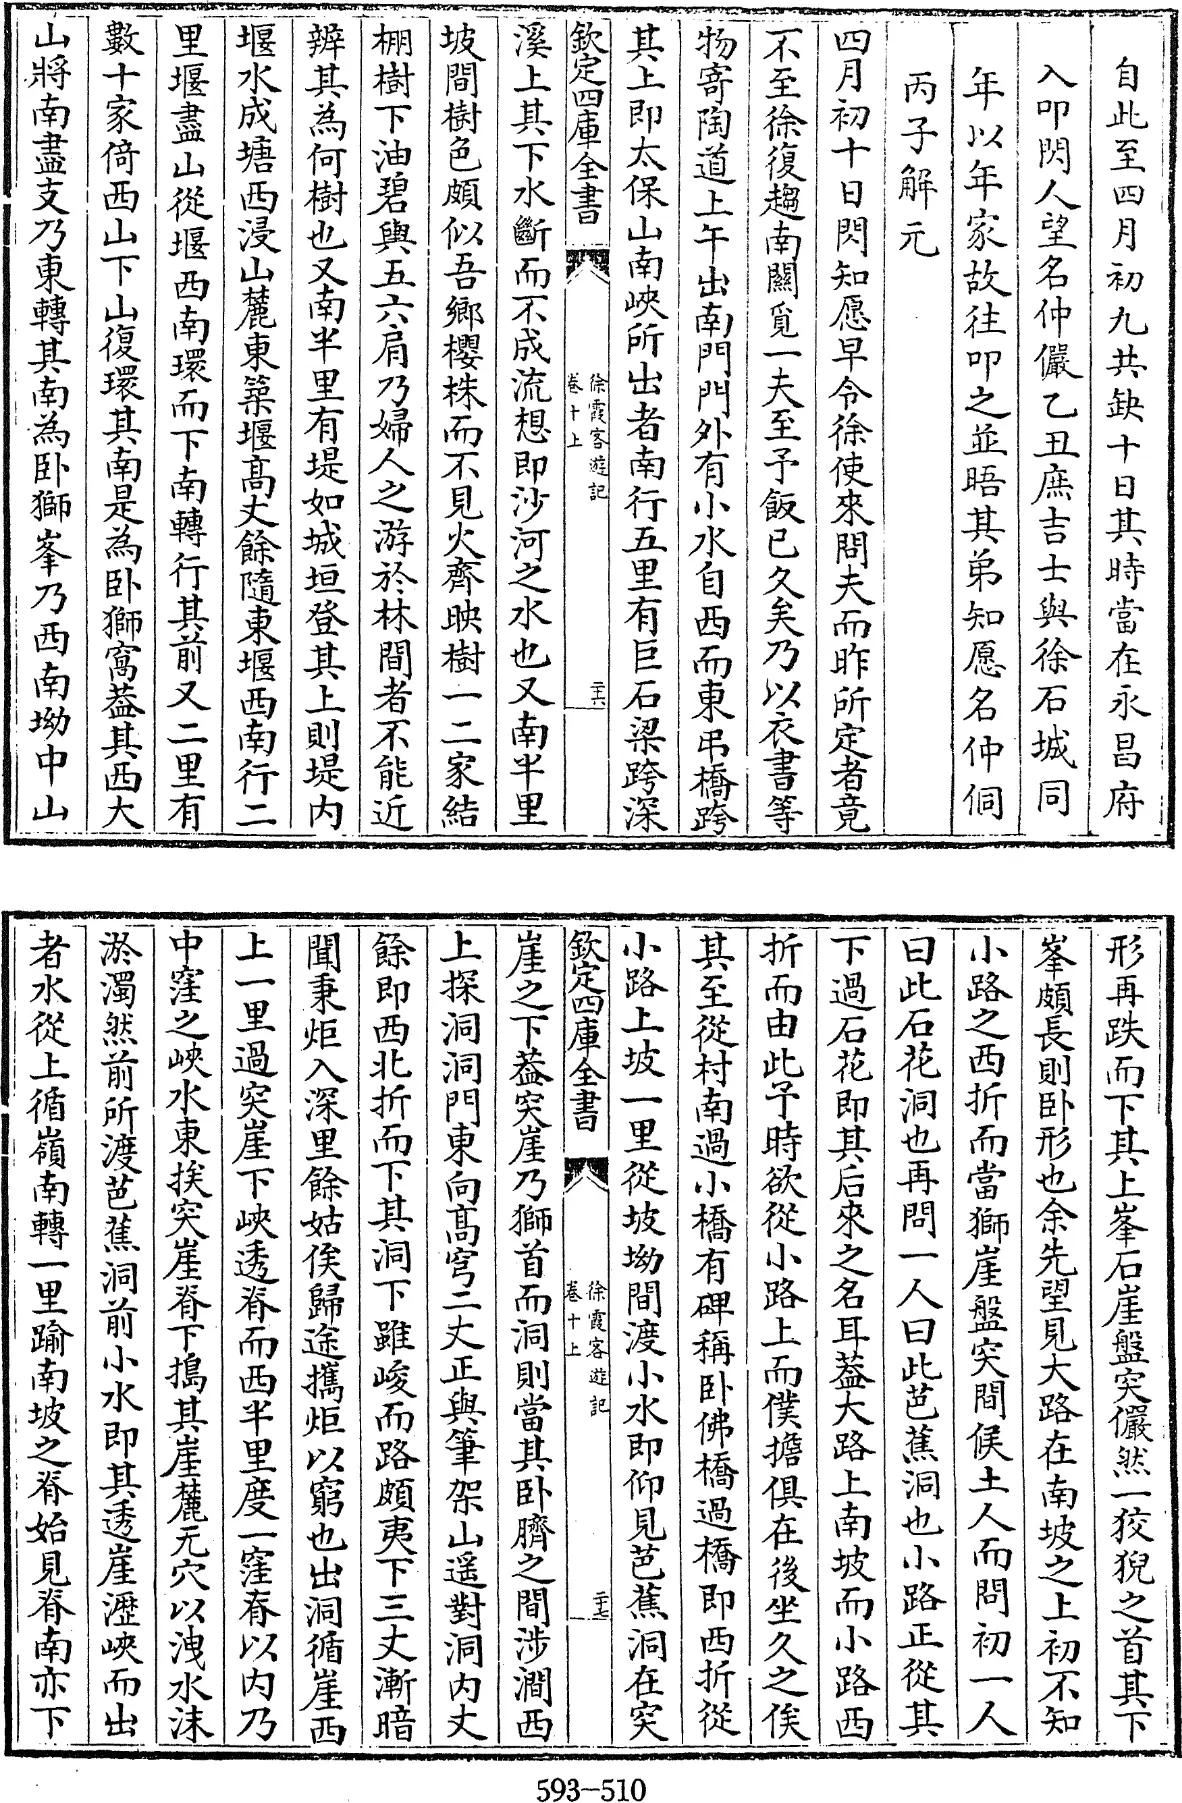 自此至四月初九共缺十日其時當在永昌府
入叩閃人望名仲儼乙丑庶吉士與徐石城同
年以年家故往叩之並晤其弟知愿名仲侗
丙子解元
四月初十日閃知愿早令徐使來問夫而昨所定者竟
不至徐復趨南關覓一夫至予飯已久矣乃以衣書等
物寄陶道上午出南門門外有小水自西而東弔橋跨
其上即太保山南峽所出者南行五里有巨石梁跨深
欽定四庫全書
徐霞客遊記
卷十上
二十六
溪上其下水斷而不成流想即沙河之水也又南半里
坡間樹色頗似吾鄉櫻株而不見火齊映樹一二家結
棚樹下油碧輿五六肩乃婦人之游於林間者不能近
辨其為何樹也又南半里有堤如城垣登其上則堤内
堰水成塘西浸山麓東築堰高丈餘隨東堰西南行二
里堰盡山從堰西南環而下南轉行其前又二里有
數十家倚西山下山復環其南是為卧獅窩葢其西大
山將南盡支乃東轉其南為卧獅峯乃西南坳中山
形再跌而下其上峯石崖盤突儼然一狡猊之首其下
峯頗長則卧形也余先望見大路在南坡之上初不知
小路之西折而當獅崖盤突間候土人而問初一人
曰此石花洞也再問一人曰此芭蕉洞也小路正從其
下過石花即其后來之名耳葢大路上南坡而小路西
折而由此予時欲從小路上而僕擔俱在後坐久之俟
其至從村南過小橋有碑稱卧佛橋過橋即西折從
小路上坡一里從坡坳間渡小水即仰見芭蕉洞在突
欽定四庫全書
徐霞客遊記
卷十上
二十七
崖之下葢突崖乃獅首而洞則當其卧臍之間涉澗西
上探洞洞門東向高穹二丈正與筆架山遥對洞内丈
餘即西北折而下其洞下雖峻而路頗夷下三丈漸暗
聞秉炬入深里餘姑俟歸途攜炬以窮也出洞循崖西
上一里過突崖下峽透脊而西半里度一窪脊以内乃
中窪之峽水東挨突崖脊下搗其崖麓无穴以洩水沫
淤濁然前所渡芭蕉洞前小水即其透崖瀝峽而出
者水從上循嶺南轉一里踰南坡之脊始見脊南亦下
593-510